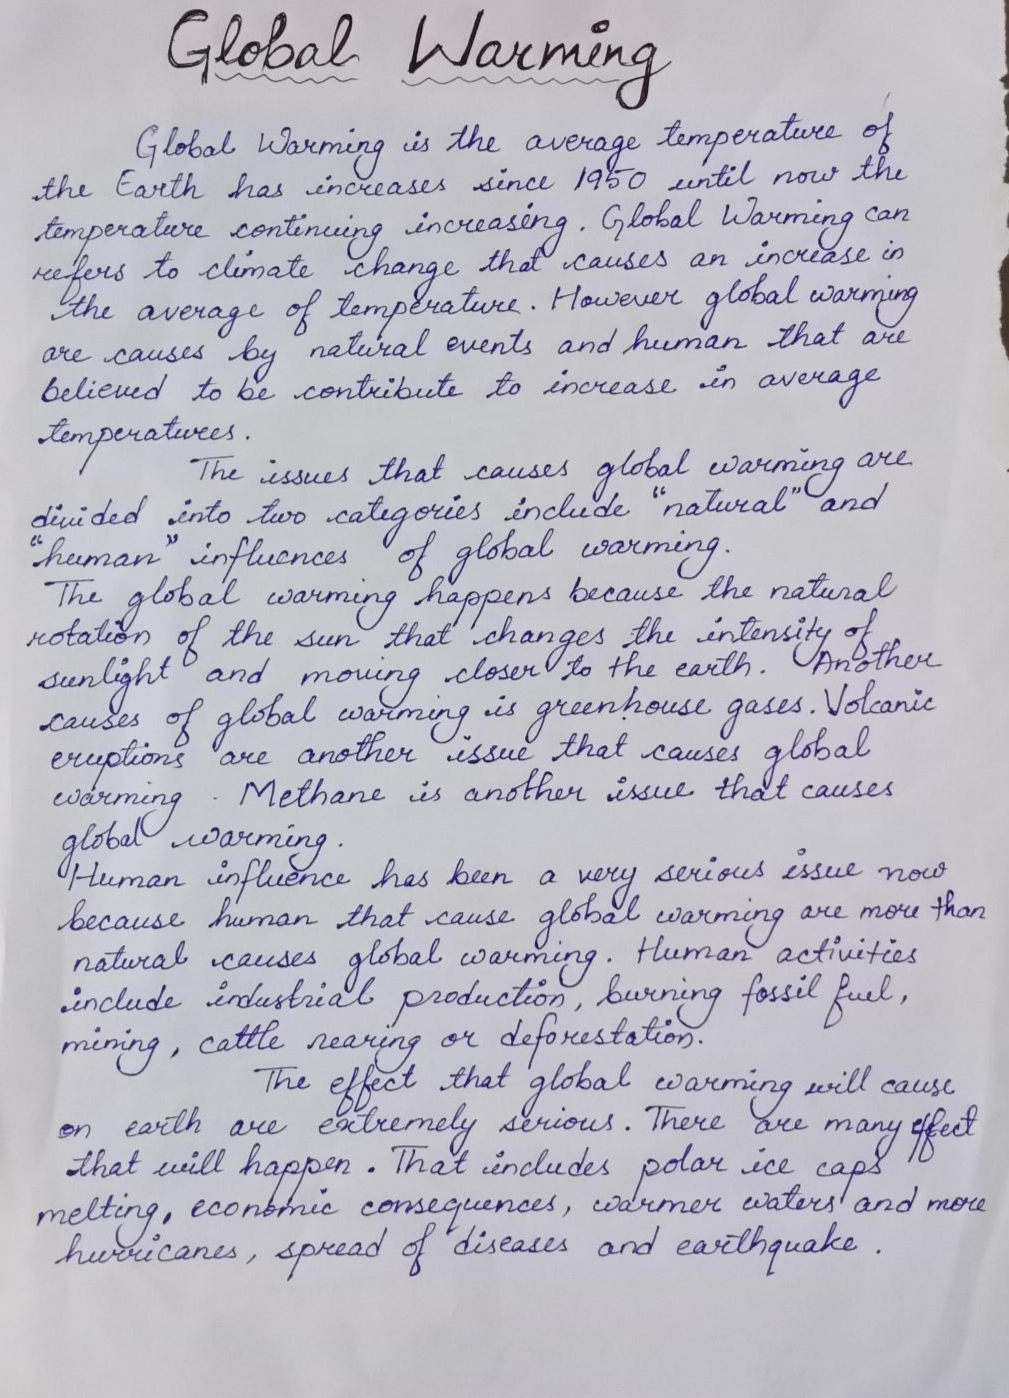 Global Warming
Global Warming is the average temperature of
the Earth has increases since 1950 until now the
temperature continuing increasing. Global Warming can
refers to climate change that causes an increase in
the average of temperature. However global warming
are causes by natural events and human that are
believed to be contribute to increase in average
temperatures.
The issues that causes global warming are
divided into two categories include "natural" and
"human" influences of global warming.
The global warming happens because the natural
rotation of the sun that changes the intensity of
sunlight and moving closer to the earth. Another
causes of global warming is greenhouse gases. Volcanic
eruptions are another issue that causes global
warming. Methane is another issue that causes
global warming.
Human influence has been a very serious issue now
because human that cause global warming are more than
natural causes global warming. Human activities
include industrial production, burning fossil fuel,
mining, cattle rearing or deforestation.
The effect that global warming will cause
on earth are extremely serious. There are many effect
that will happen. That includes polar ice caps
melting, economic consequences, warmer waters and more
hurricanes, spread of diseases and earthquake.